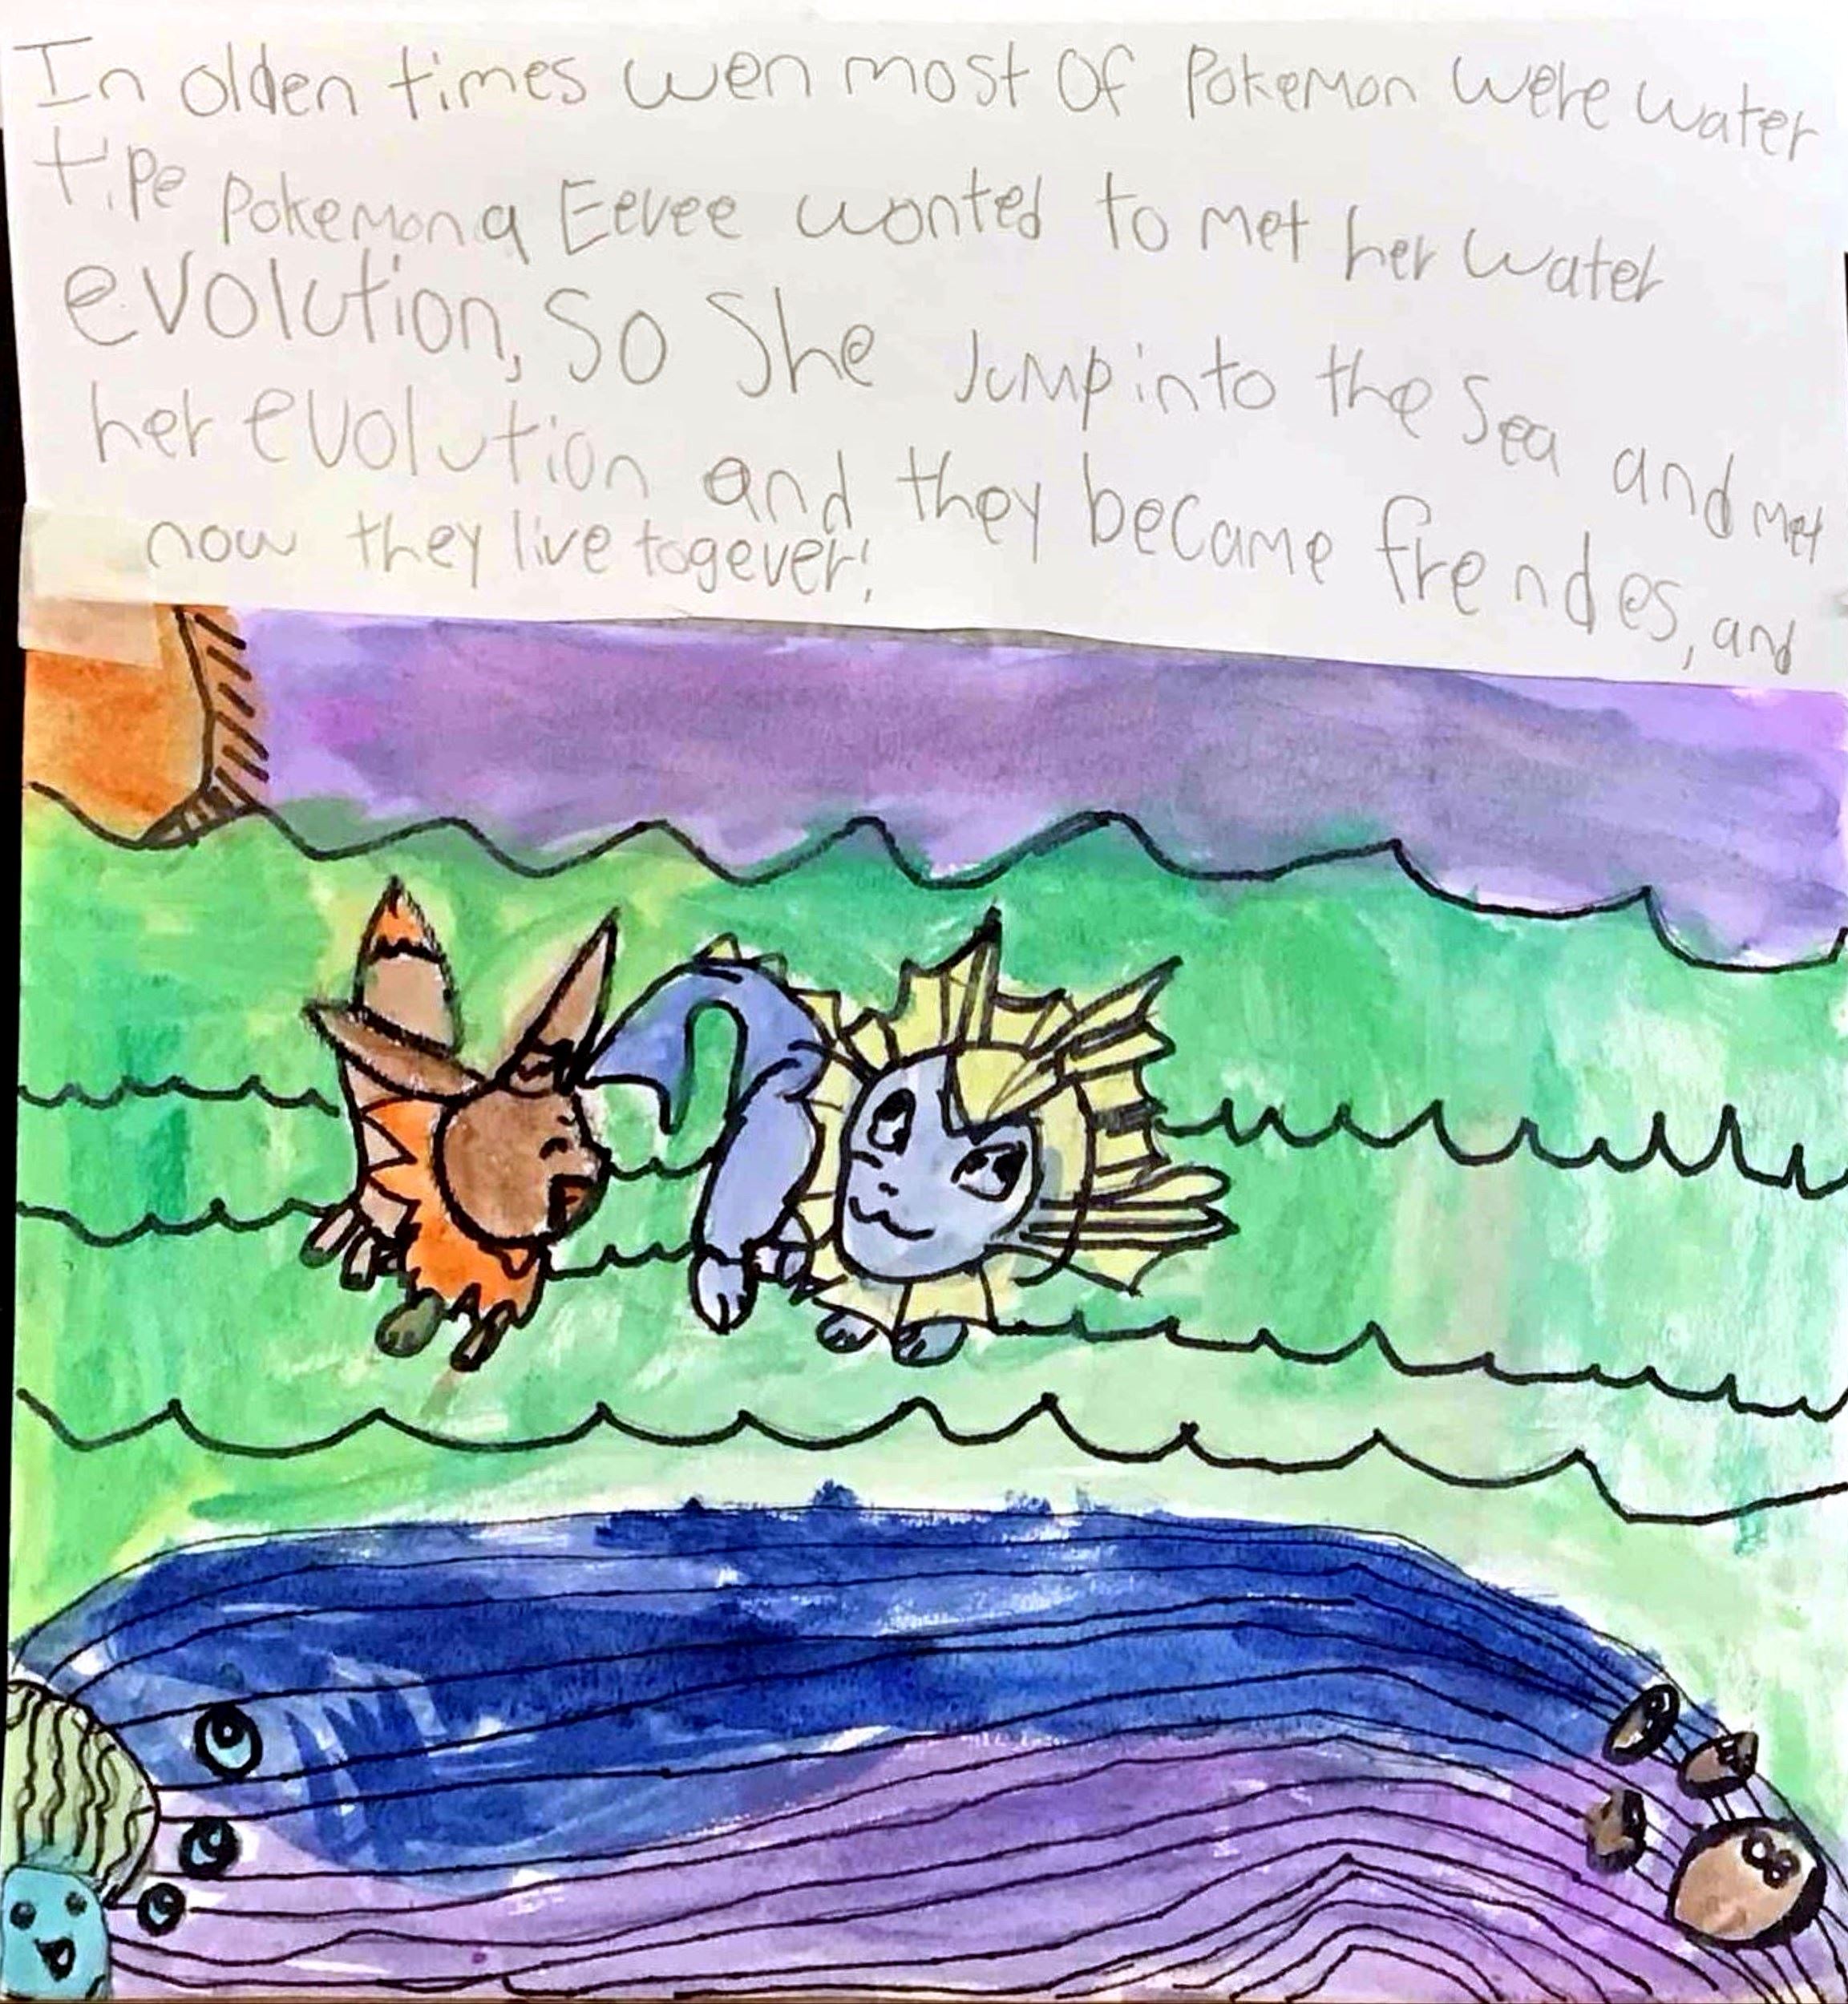 In olden times wen most of Pokemon were water
tipe Pokemon a Eevee wonted to met her water
evolution, so she Jump into the Sea and met
her evolution and they became frendes, and
now they live togever!